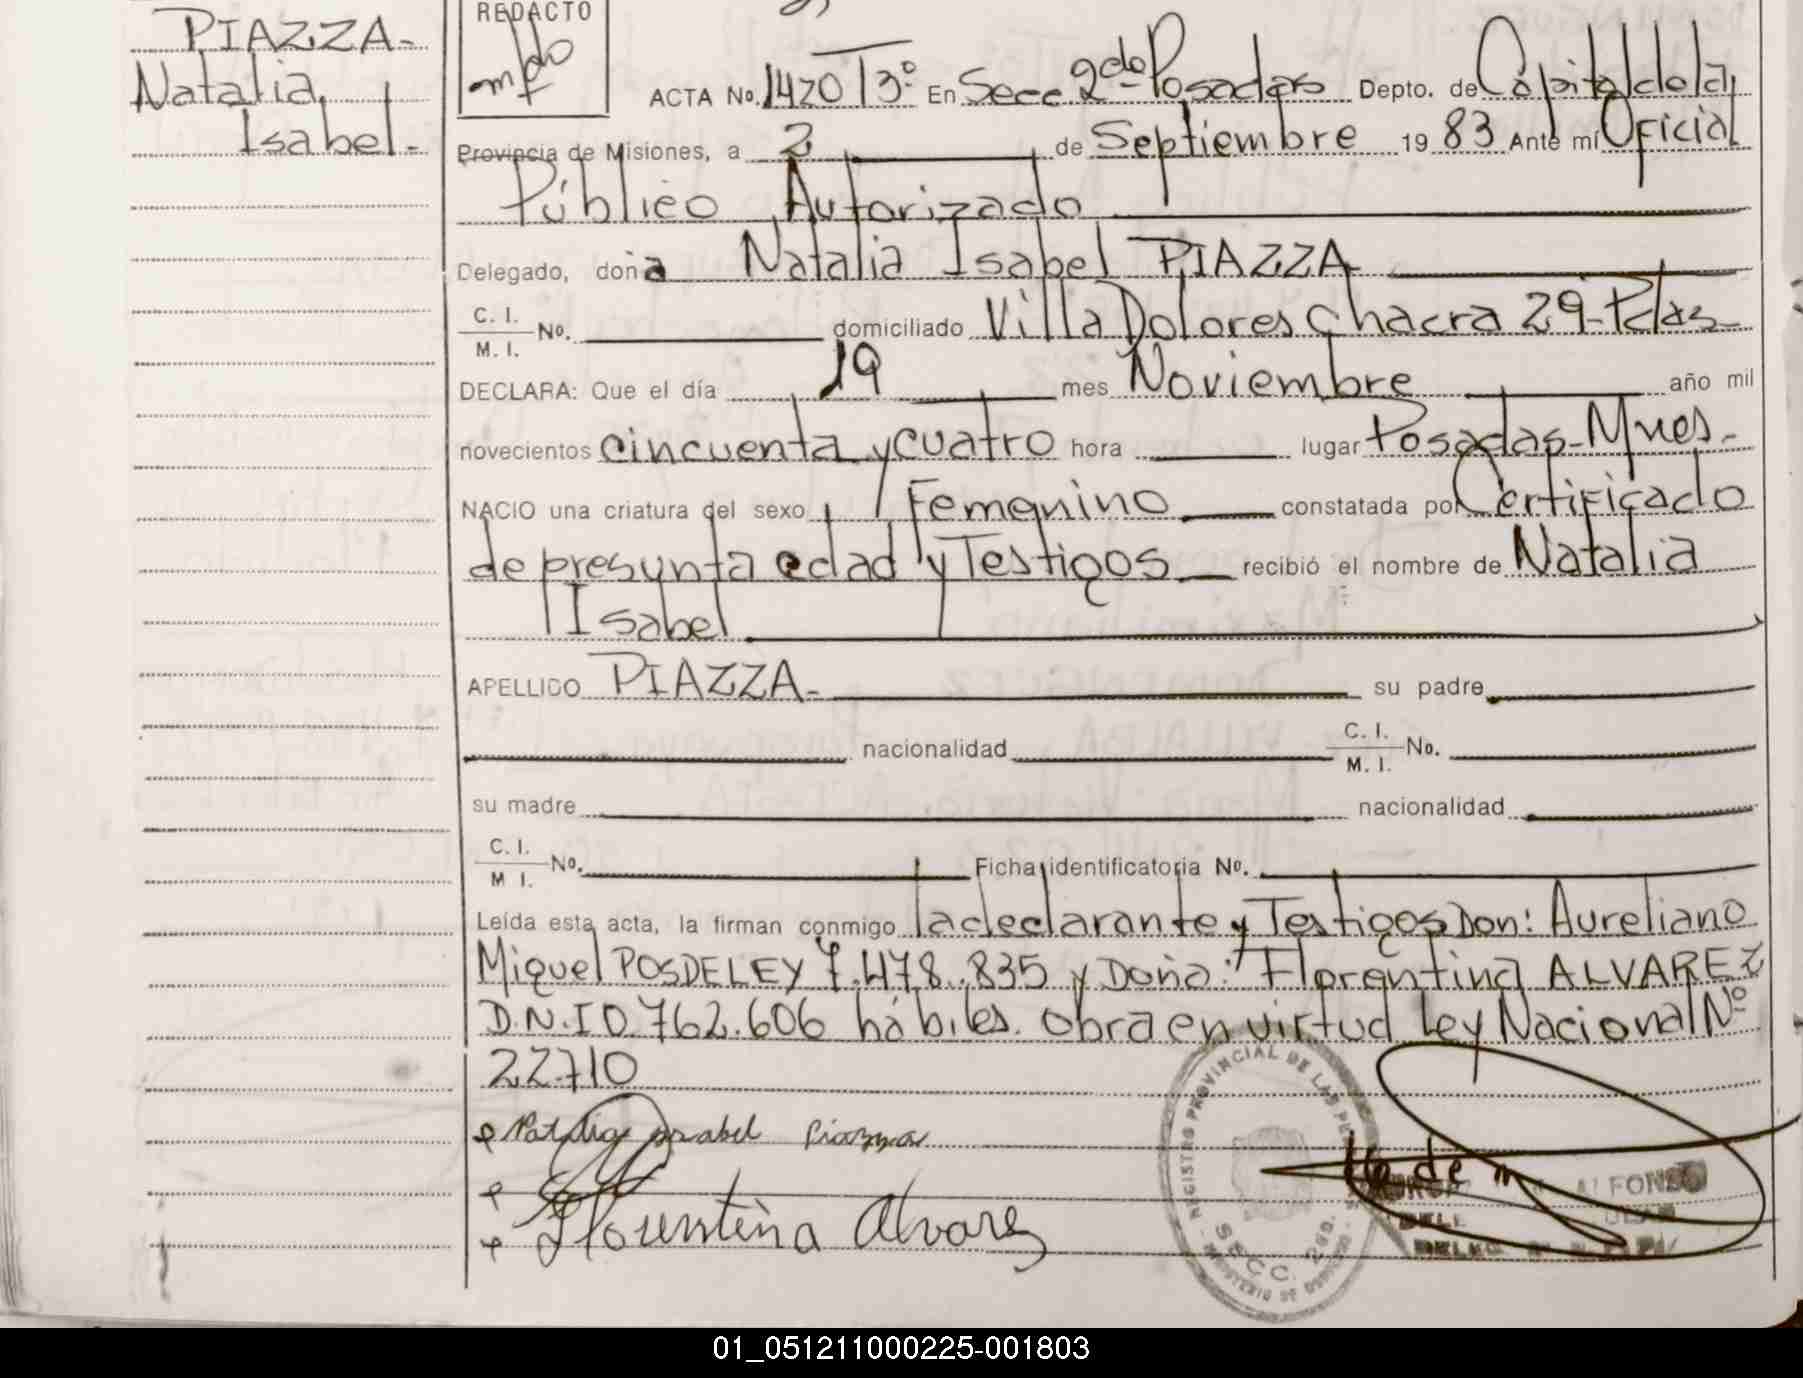 PIAZZA-
Natalia
Isabel-
REDACTO
ACTA No. 1420 T3º En Secc 2da Posadas Depto. de Capital de la
Provincia de Misiones, a 2 de Septiembre 1983 Ante mí Oficial
Público Autorizado
Delegado, doña Natalia Isabel PIAZZA
C. I.
M. I. No. domiciliado Villa Dolores Chacra 29-Pdas-
DECLARA: Que el día 19 mes Noviembre año mil
novecientos cincuenta y cuatro hora lugar Posadas-Mnes-
NACIO una criatura del sexo Femenino constatada por Certificado
de presunta edad y Testigos recibió el nombre de Natalia
Isabel
APELLIDO PIAZZA- su padre
nacionalidad C. I.
M. I. No.
su madre nacionalidad
C. I.
M I. No. Ficha identificatoria No.
Leída esta acta, la firman conmigo la declarante y Testigos Don: Aureliano
Miguel POSDELEY 7.478.835 y Doña: Florentina ALVAREZ
D.N.I 0.762.606 hábiles. Obra en virtud Ley Nacional Nº
22710
Natalia Isabel Piazza
Florentina Alvarez
REGISTRO PROVINCIAL DE LAS PER
SECC. 2da.
MINISTERIO DE
ALFONSO
01_051211000225-001803